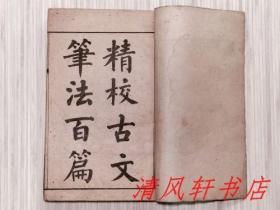 精校古文
筆法百篇
清风轩书店